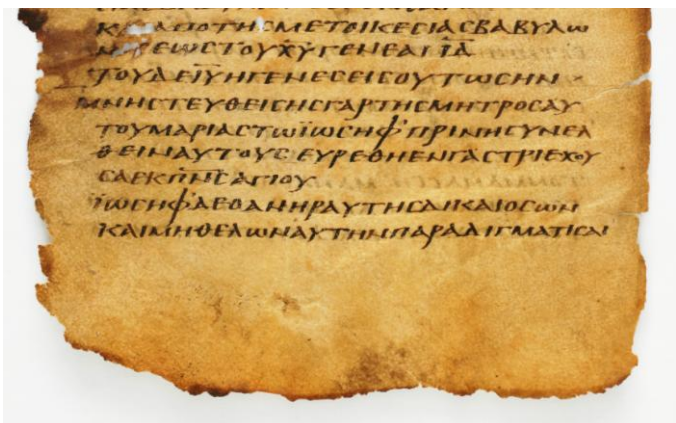 ΚΑΙΑΠΟΤΗΣΜΕΤΟΙΚΕΣΙΑΣΒΑΒΥΛΩ
ΝΟΣΕΩΣΤΟΥΧ̅Υ̅ΓΕΝΕΑΙΙ̅Δ̅
ΤΟΥΔΕΙ̅Υ̅ΗΓΕΝΕΣΕΙΣΟΥΤΩΣΗΝ
ΜΝΗΣΤΕΥΘΕΙΣΗΣΓΑΡΤΗΣΜΗΤΡΟΣΑΥ
ΤΟΥΜΑΡΙΑΣΤΩΪΩΣΗΦ᾿ΠΡΙΝΗΣΥΝΕΛ
ΘΕΙΝΑΥΤΟΥΣ·ΕΥΡΕΘΗΕΝΓΑΣΤΡΙΕΧΟΥ
ΣΑΕΚΠ̅Ν̅Σ̅ΑΓΙΟΥ
ΪΩΣΗΦΔΕΟΑΝΗΡΑΥΤΗΣΔΙΚΑΙΟΣΩΝ
ΚΑΙΜΗΘΕΛΩΝΑΥΤΗΝΠΑΡΑΔΙΓΜΑΤΙΣΑΙ